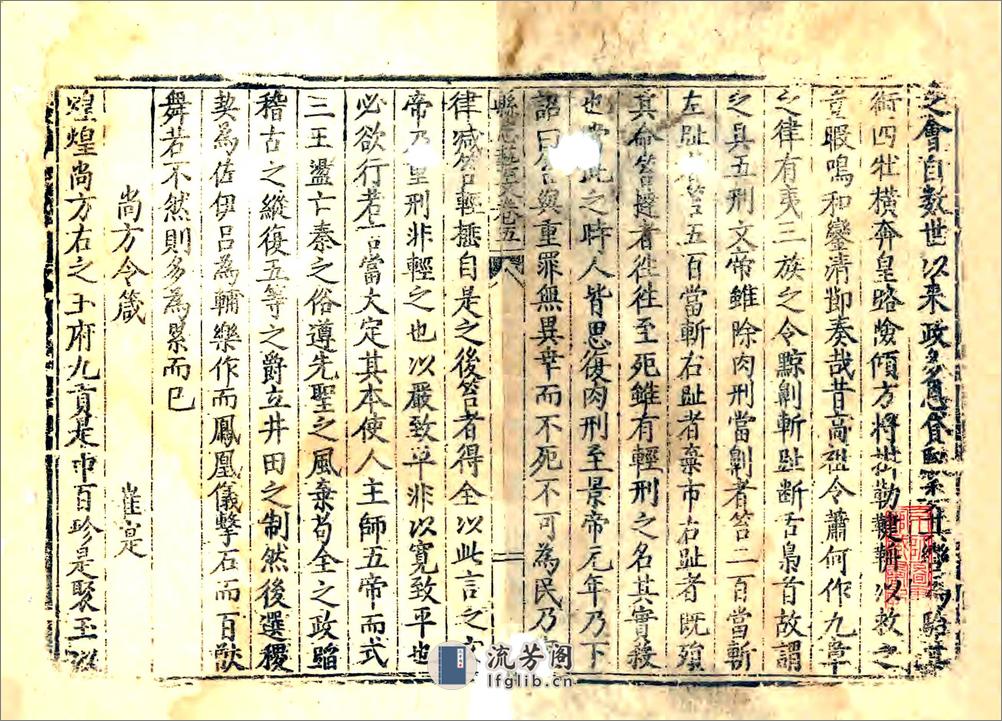 之會自數世以來政多恩貸馭
衘四牡橫奔皇路險傾方將拑勒鞬輈以救之
豈暇鳴和鑾清節奏哉昔高祖令蕭何作九章
之律有夷三族之令黥劓斬趾断舌梟首故謂
之具五刑文帝雖除肉刑當劓者笞二百當斬
左趾者笞五百當斬右趾者棄市右趾者既殞
其命笞撻者徃徃至死雖有輕刑之名其實殺
也當此之時人皆思復肉刑至景帝元年乃下
詔曰笞與重罪無異幸而不死不可為民乃
縣志藝文卷五 八
律减笞輕捶自是之後笞者得全以此言之文
帝乃重刑非輕之也以嚴致平非以寛致平也
必欲行若言當大定其本使人主師五帝而式
三王盪亡秦之俗遵先聖之風棄苟全之政蹈
稽古之縱復五等之爵立井田之制然後選稷
契為佐伊吕為輔樂作而鳳凰儀擊石而百獸
舞若不然則多為累而已
尚方令箴 崔寔
煌煌尚方右之玉府九貢是中百珍是聚玉
流芳阁
lfglib.cn